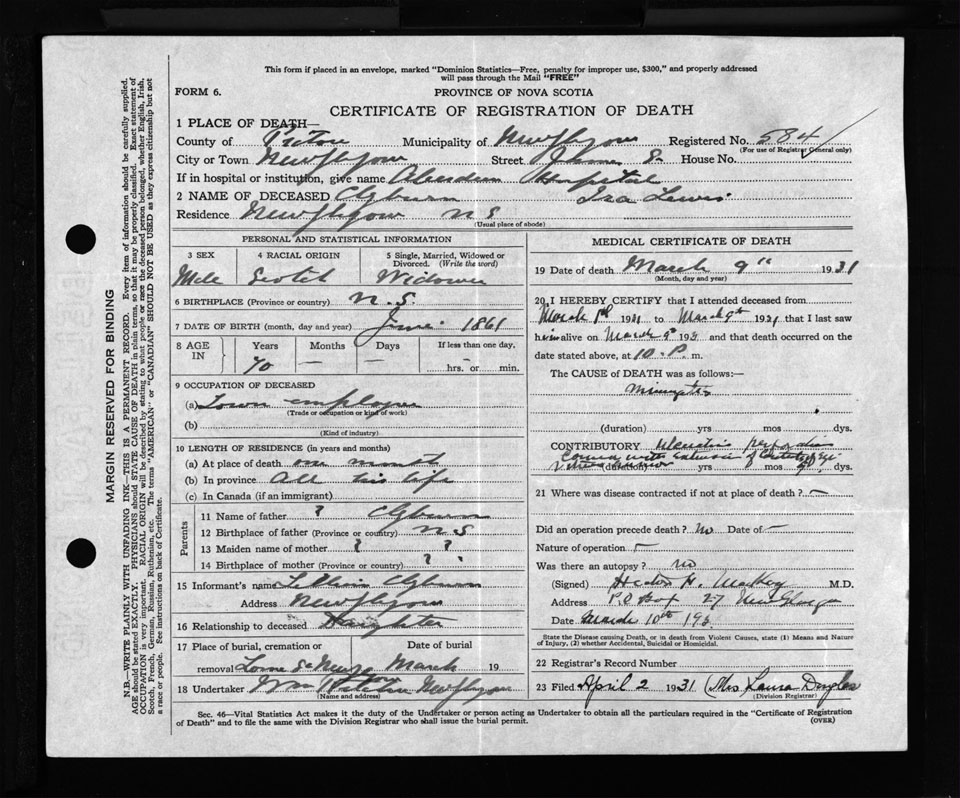 This form if placed in an envelope, marked "Dominion Statistics—Free, penalty for improper use, $300," and properly addressed
will pass through the Mail "FREE"
FORM 6.
PROVINCE OF NOVA SCOTIA
CERTIFICATE OF REGISTRATION OF DEATH
1 PLACE OF DEATH—
County of Pictou Municipality of New Glasgow Registered No. 584
(For use of Registrar General only)
City or Town New Glasgow Street House No.
If in hospital or institution, give name Aberdeen Hospital
2 NAME OF DECEASED Clyburn Ira Lewis
Residence New Glasgow N S
(Usual place of abode)
PERSONAL AND STATISTICAL INFORMATION
3 SEX 4 RACIAL ORIGIN 5 Single, Married, Widowed or
Divorced. (Write the word)
Male Scotch Widower
6 BIRTHPLACE (Province or country) N.S.
7 DATE OF BIRTH (month, day and year) June 1861
8 AGE IN Years Months Days If less than one day,
70 — — — hrs. or min.
9 OCCUPATION OF DECEASED
(a) Town employee
(Trade or occupation or kind of work)
(b)
(Kind of industry)
10 LENGTH OF RESIDENCE (in years and months)
(a) At place of death one month
(b) In province All his life
(c) In Canada (if an immigrant)
Parents
11 Name of father ? Clyburn
12 Birthplace of father (Province or country) N S
13 Maiden name of mother ? ?
14 Birthplace of mother (Province or country) ? ?
15 Informant's name Clyburn
Address New Glasgow
16 Relationship to deceased Daughter
17 Place of burial, cremation or Date of burial
removal Lorne St March 19
18 Undertaker Wm New Glasgow
(Name and address)
MEDICAL CERTIFICATE OF DEATH
19 Date of death March 9th 1931
(Month, day and year)
20 I HEREBY CERTIFY that I attended deceased from
March 1931 to March 9th 1931 that I last saw
him alive on March 9th 193 and that death occurred on
date stated above, at 10 P. m.
The CAUSE of DEATH was as follows:—
(duration) yrs mos dys.
CONTRIBUTORY perforation
(duration) yrs mos dys.
21 Where was disease contracted if not at place of death? —
Did an operation precede death? no Date of —
Nature of operation —
Was there an autopsy? no
(Signed) H. M.D.
Address P.O Box 27 New Glasgow
Date March 10th 193
State the Disease causing Death, or in death from Violent Causes, state (1) Means and Nature
of Injury, (2) whether Accidental, Suicidal or Homicidal.
22 Registrar's Record Number
23 Filed April 2 1931 (Mrs Laura Douglas
(Division Registrar)
Sec. 46—Vital Statistics Act makes it the duty of the Undertaker or person acting as Undertaker to obtain all the particulars required in the "Certificate of Registration
of Death" and to file the same with the Division Registrar who shall issue the burial permit. (OVER)
MARGIN RESERVED FOR BINDING
N.B.—WRITE PLAINLY WITH UNFADING INK—THIS IS A PERMANENT RECORD. Every item of information should be carefully supplied.
AGE should be stated EXACTLY. PHYSICIANS should STATE CAUSE OF DEATH in plain terms, so that it may be properly classified. Exact statement of
OCCUPATION is very important. RACIAL ORIGIN will be described by stating to what people or race the deceased person belonged, whether English, Irish,
Scotch, French, German, Russian, Ruthenian, etc. The terms "AMERICAN" or "CANADIAN" SHOULD NOT BE USED as they express citizenship but not
a race or people. See instructions on back of Certificate.